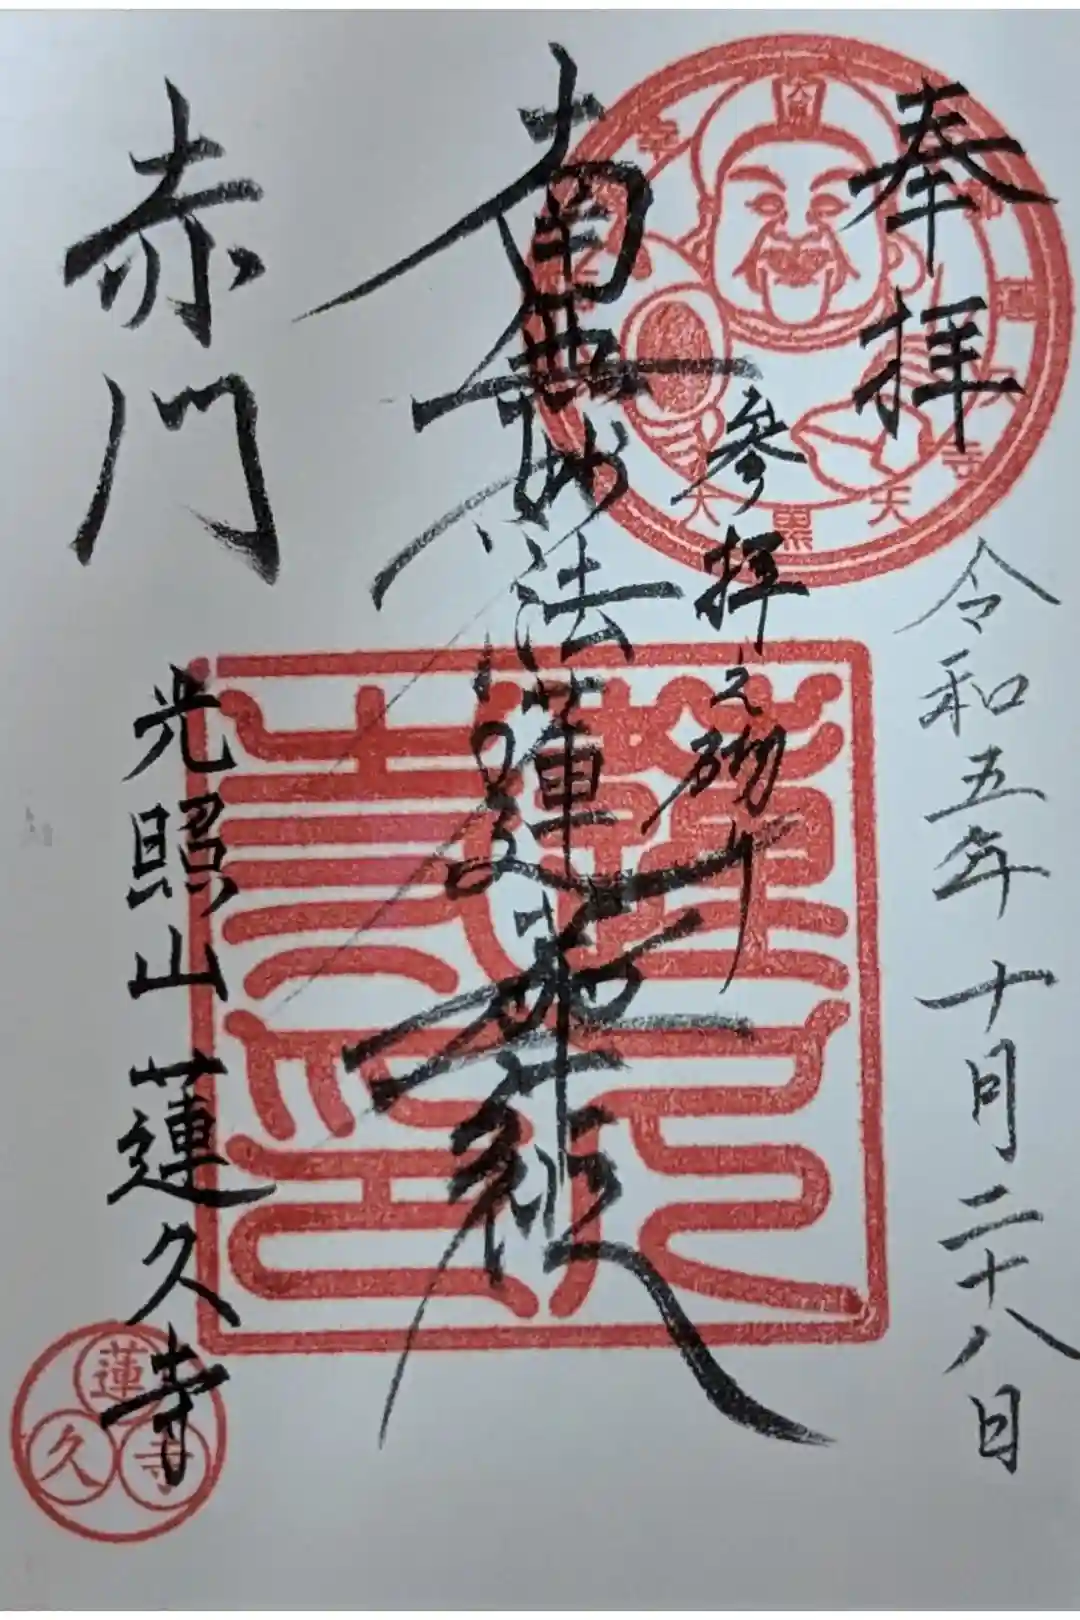 奉拝
令和五年十月二十八日
参拝之砌り
南無妙法蓮華経
赤門
光照山蓮久寺
大黒天
蓮久寺